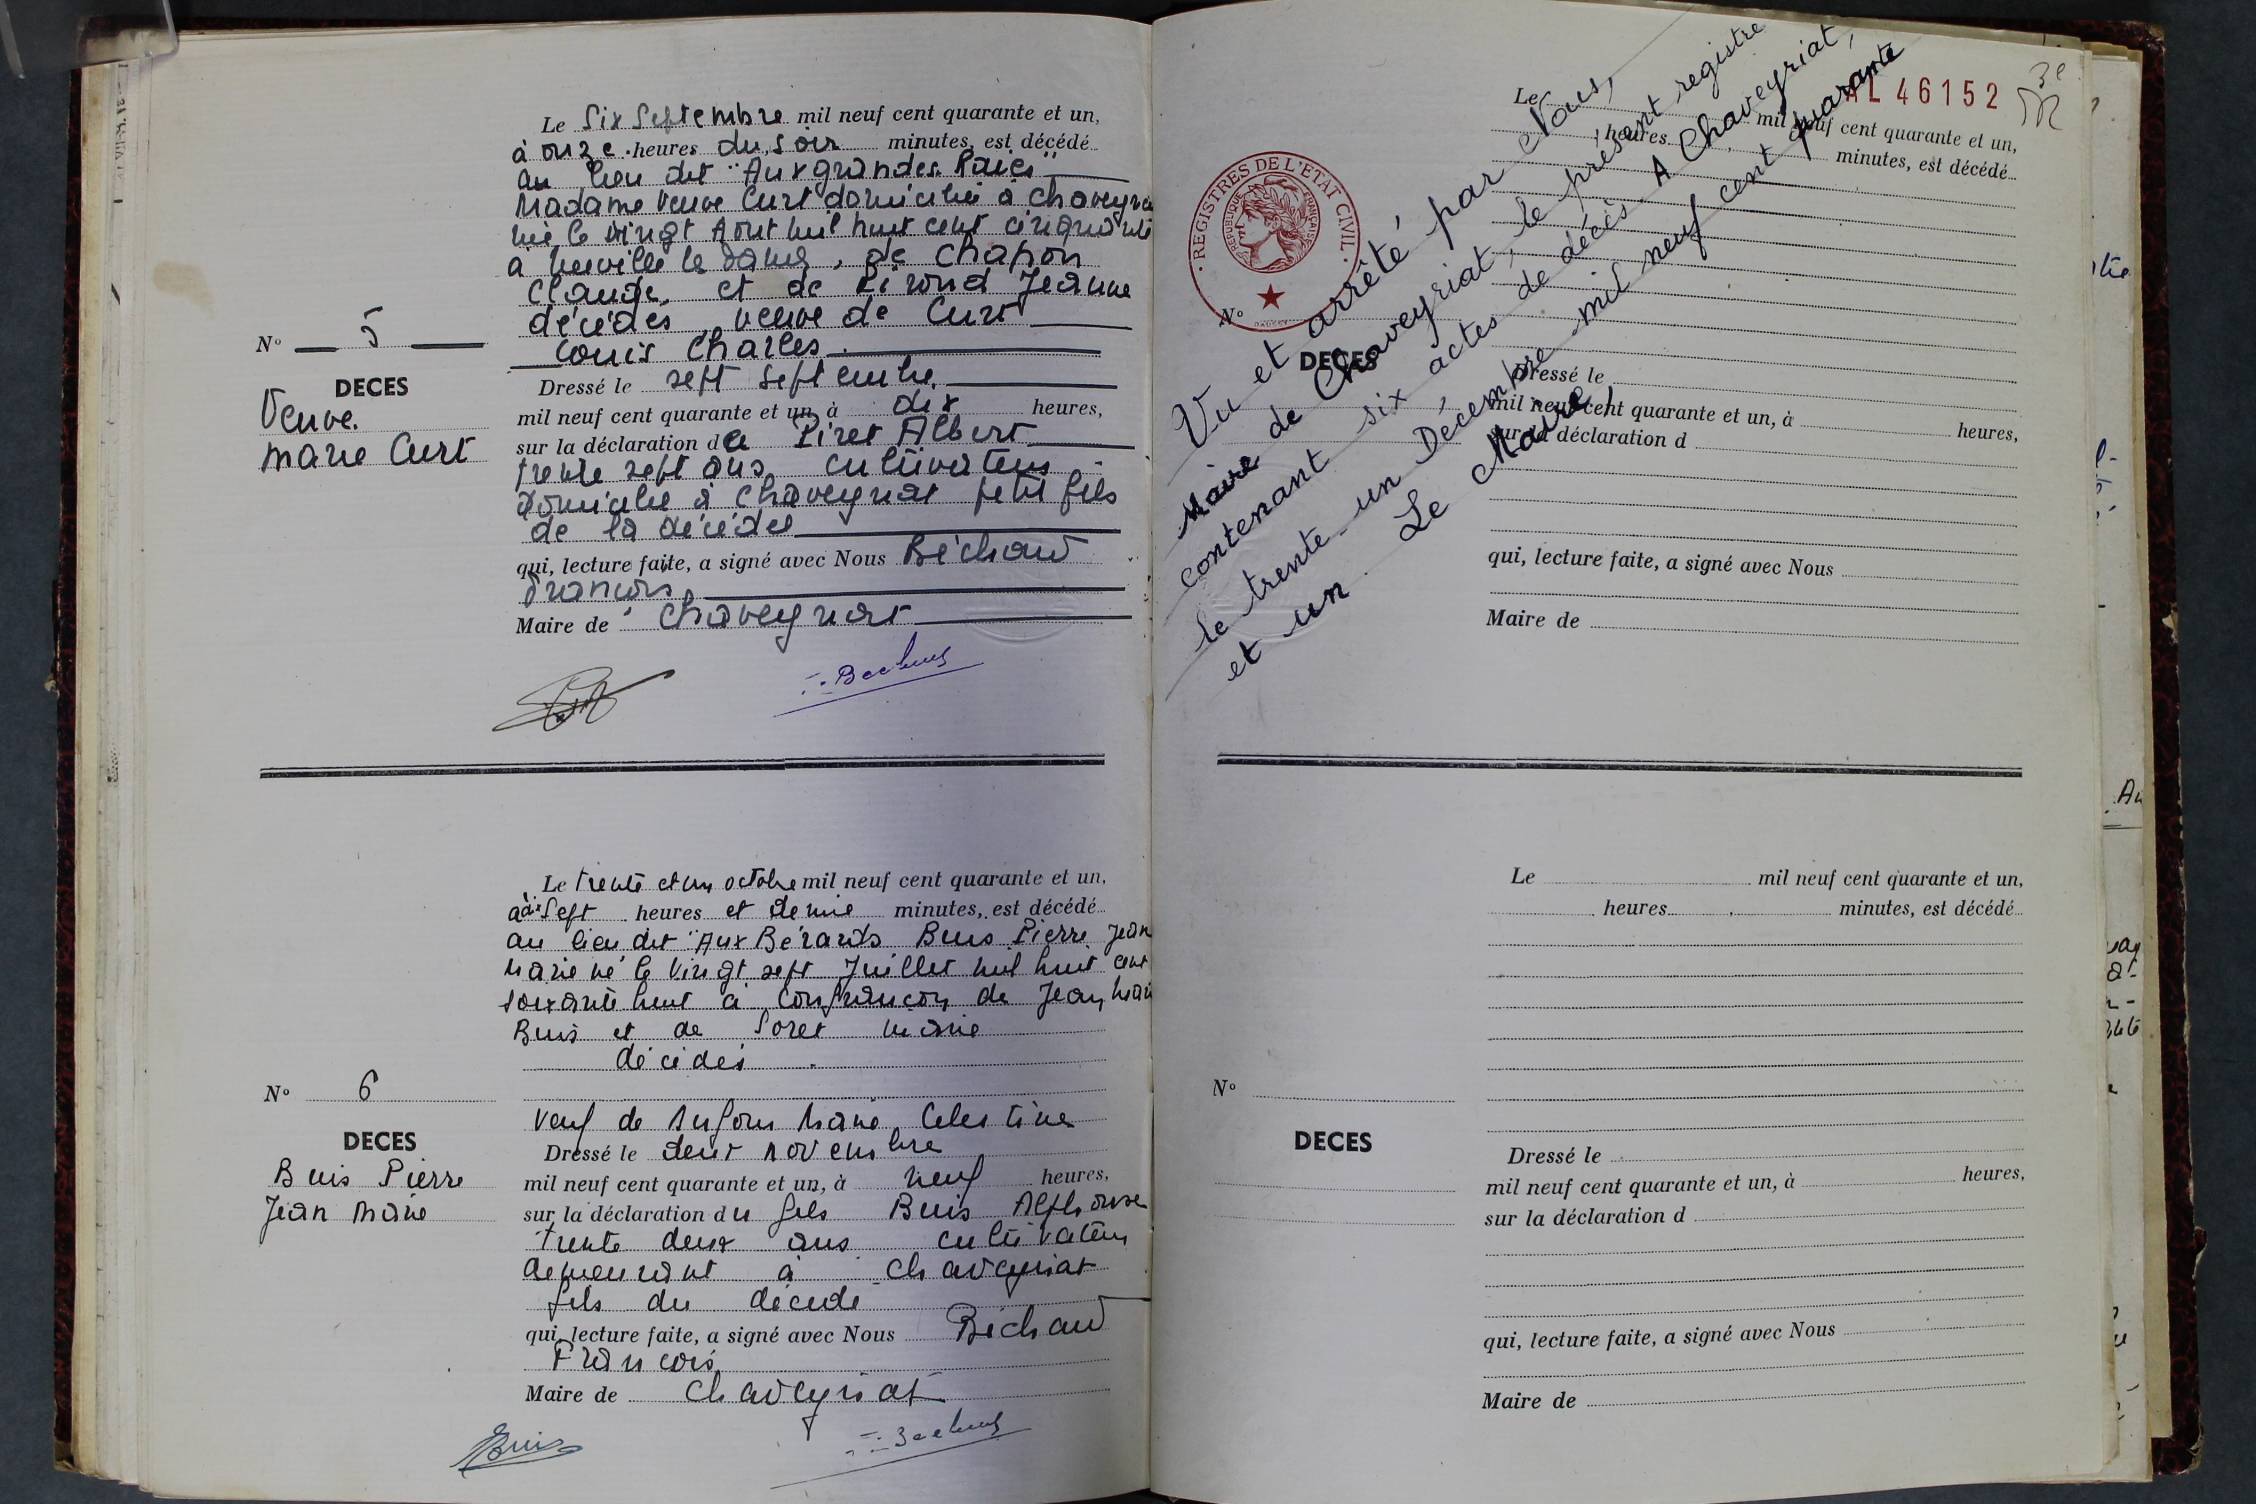 Le Six Septembre mil neuf cent quarante et un,
à onze heures du soir minutes, est décédé
au lieu dit "Aux grandes Raies"
Madame Veuve Curt domiciliée à Chaveyria
née le vingt Aout mil huit cent cinquante
a Neuville les Dames, de Chapon
Claude, et de Jeanne
décédés, veuve de Curt
Louis Charles.
N° 5
DECES
Veuve.
Marie Curt
Dressé le sept septembre
mil neuf cent quarante et un, à dix heures,
sur la déclaration de Piret Albert
trente sept ans cultivateur
domicilié à Chaveyriat petit fils
de la décédée
qui, lecture faite, a signé avec Nous Béchard
François,
Maire de Chaveyriat
Le trente et un octobre mil neuf cent quarante et un,
à dix Sept heures et demie minutes, est décédé
au lieu dit "Aux Bérards Buis Pierre Jean
Marie né le Vingt sept Juillet mil huit cent
soixante huit à Confrançon de Jean Marie
Buis et de Soret Marie
décédés.
N° 6
DECES
Buis Pierre
Jean Marie
veuf de Marie Celestine
Dressé le deux novembre
mil neuf cent quarante et un, à neuf heures,
sur la déclaration du fils Buis Alphonse
trente deux ans cultivateur
demeurant à Chaveyriat
fils du décédé
qui, lecture faite, a signé avec Nous Béchard
François
Maire de Chaveyriat
Buis
AL 46152
3e
REGISTRES DE L'ETAT CIVIL
REPUBLIQUE FRANÇAISE
Vu et arrêté par Nous,
Maire de Chaveyriat, le présent registre
contenant six actes de décès A Chaveyriat,
le trente-un Décembre mil neuf cent quarante
et un. Le Maire,
Le mil neuf cent quarante et un,
heures minutes, est décédé
N°
DECES
Dressé le
mil neuf cent quarante et un, à heures,
sur la déclaration d
qui, lecture faite, a signé avec Nous
Maire de
Le mil neuf cent quarante et un,
heures minutes, est décédé
N°
DECES
Dressé le
mil neuf cent quarante et un, à heures,
sur la déclaration d
qui, lecture faite, a signé avec Nous
Maire de